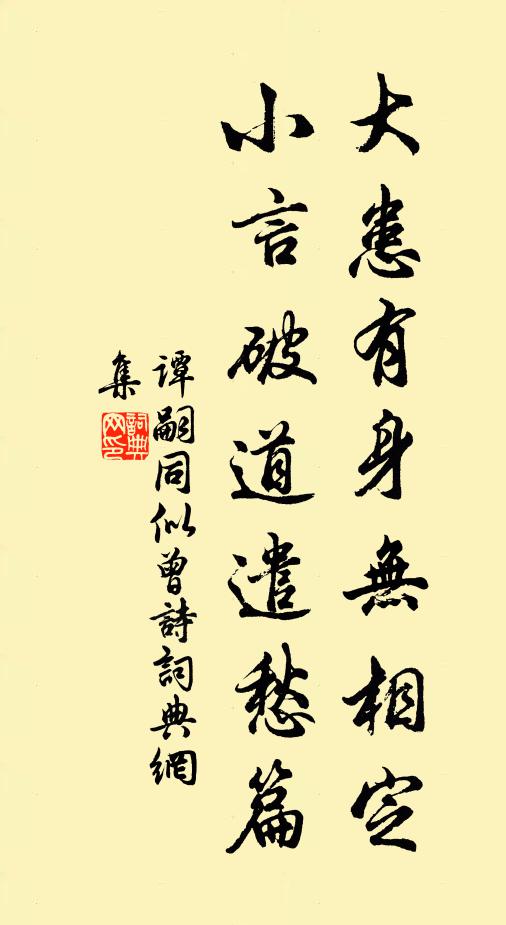 大患有身無相定
小言破道遣愁篇
譚嗣同似曾詩詞典網
集
詞典网印